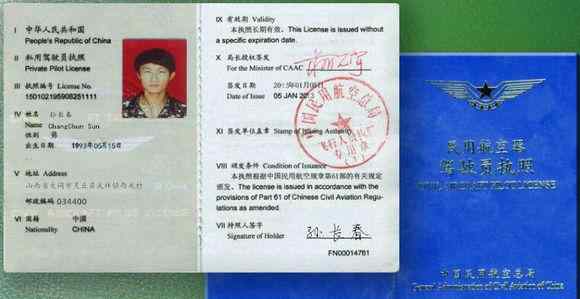 I 中华人民共和国
People's Republic of China
II 私用驾驶员执照
Private Pilot License
III 执照编号 License No.
IV 姓名
Name ChangChun Sun
性别 男
出生日期
V 地址 Address
邮政编码 034400
VI 国籍 中国
Nationality CHINA
IX 有效期 Validity
本执照长期有效。This License is issued without
a specific expiration date.
X 局长授权签发
For the Minister of CAAC
签发日期
Date of Issue 05 JAN
XI 签发单位盖章 Stamp of Issuing Authority
VIII 颁发条件 Condition of Issuance
本执照根据中国民用航空规章第61部的有关规定
颁发。The license is issued in accordance with the
provisions of Part 61 of Chinese Civil Aviation Regu-
lations as amended.
VII 持照人签字
Signature of Holder 孙长春
FN00014761
中国民用航空总局
民用航空器
驾驶员执照
CIVIL AIRCRAFT PILOT LICENSE
中国民用航空总局
General Administration of Civil Aviation of China